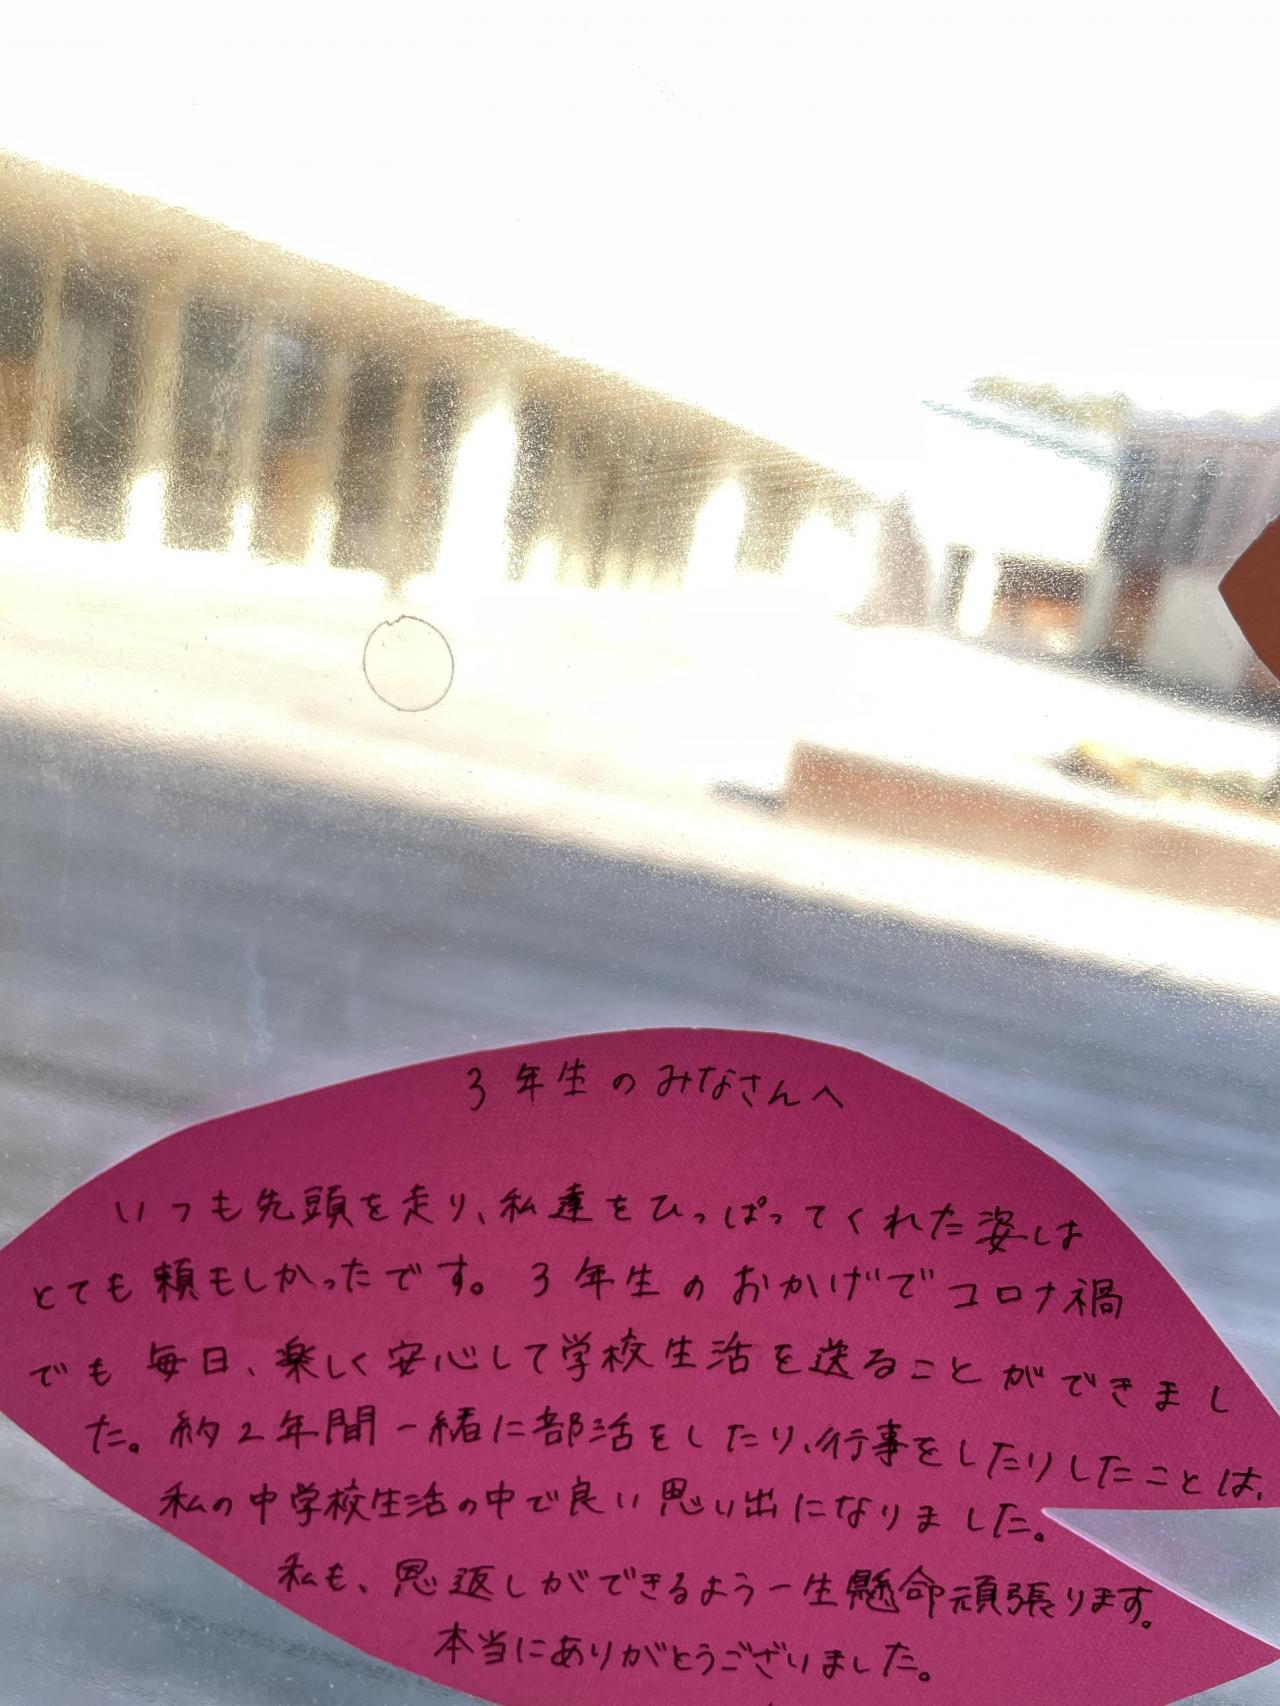 3年生のみなさんへ
いつも先頭を走り、私達をひっぱってくれた姿は
とても頼もしかったです。3年生のおかげでコロナ禍
でも毎日、楽しく安心して学校生活を送ることができまし
た。約2年間一緒に部活をしたり、行事をしたりしたことは、
私の中学校生活の中で良い思い出になりました。
私も、恩返しができるよう一生懸命頑張ります。
本当にありがとうございました。